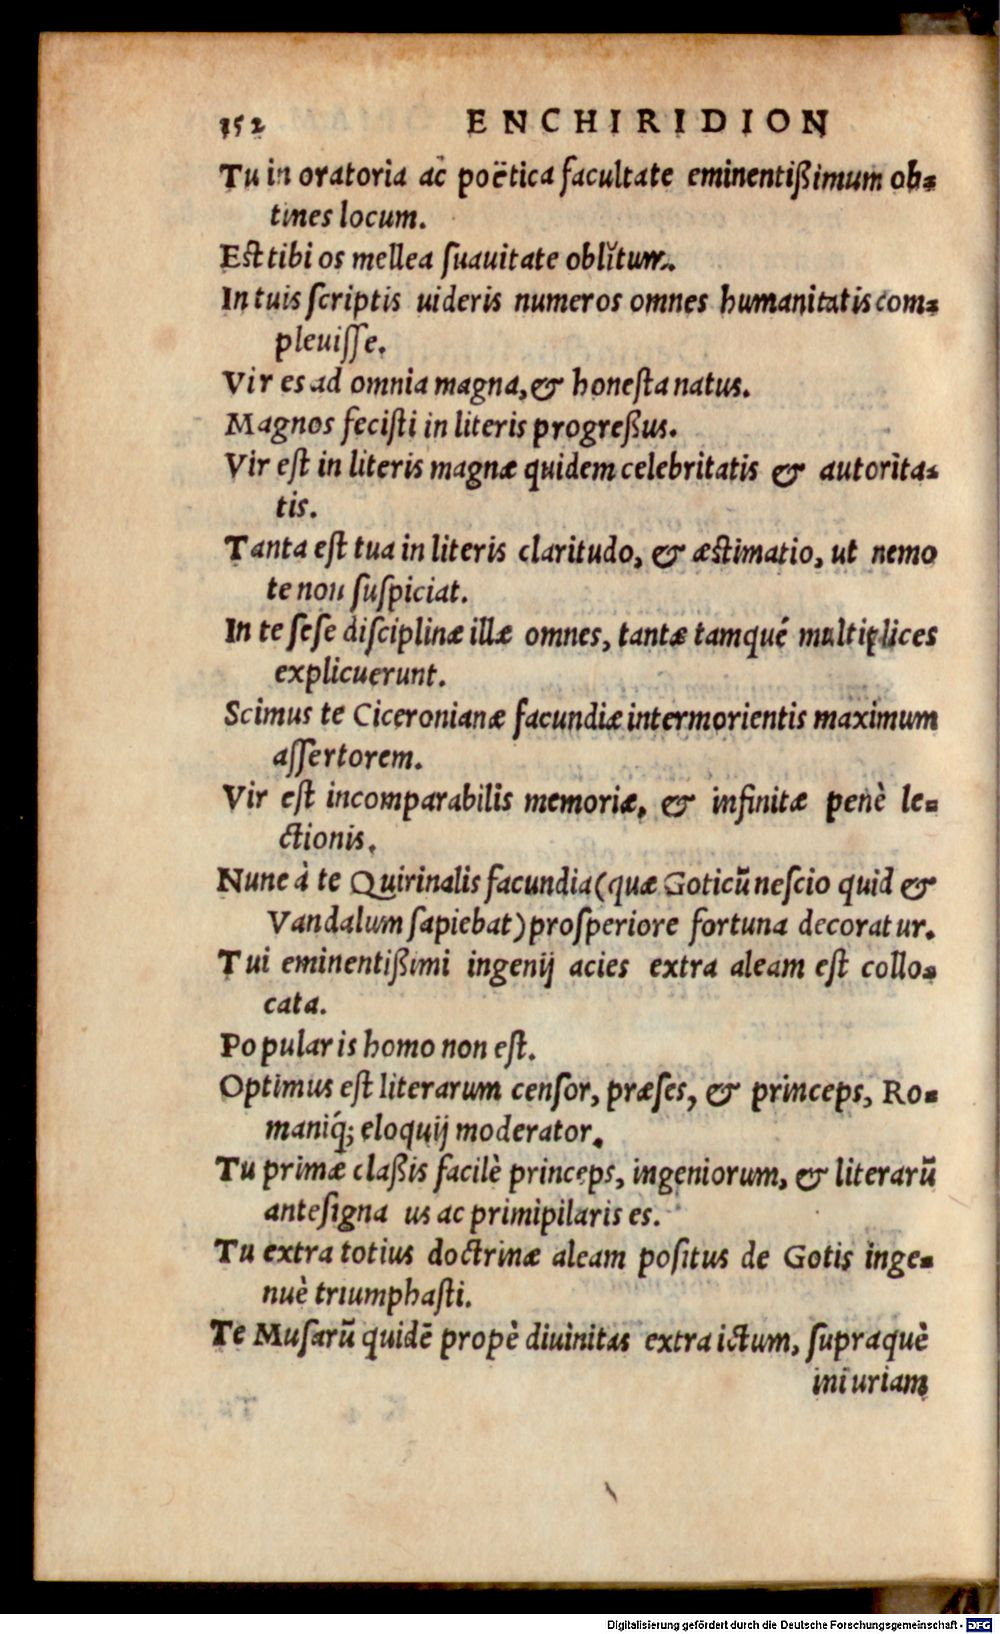 152 ENCHIRIDION
Tu in oratoria ac poëtica facultate eminentißimum ob-
tines locum.
Est tibi os mellea ſuauitate oblitum.
In tuis ſcriptis uideris numeros omnes humanitatis com-
pleuiſſe.
Vir es ad omnia magna, & honeſta natus.
Magnos feciſti in literis progreßus.
Vir eſt in literis magnæ quidem celebritatis & autorita-
tis.
Tanta eſt tua in literis claritudo, & æstimatio, ut nemo
te non ſuſpiciat.
In te ſeſe diſciplinæ illæ omnes, tantæ tamqué multiplices
explicuerunt.
Scimus te Ciceronianæ facundiæ intermorientis maximum
aſſertorem.
Vir eſt incomparabilis memoriæ, & infinitæ penè le-
ctionis.
Nunc à te Quirinalis facundia (quæ Goticū neſcio quid &
Vandalum ſapiebat) proſperiore fortuna decoratur.
Tui eminentißimi ingenij acies extra aleam eſt collo-
cata.
Popularis homo non eſt.
Optimus eſt literarum cenſor, præſes, & princeps, Ro-
maniq́; eloquij moderator.
Tu primæ claßis facilè princeps, ingeniorum, & literarū
anteſigna us ac primipilaris es.
Tu extra totius doctrinæ aleam poſitus de Gotis inge-
nuè triumphaſti.
Te Muſarū quidē propè diuinitas extra ictum, ſupraquè
iniuriam
Digitalisierung gefördert durch die Deutsche Forschungsgemeinschaft - DFG